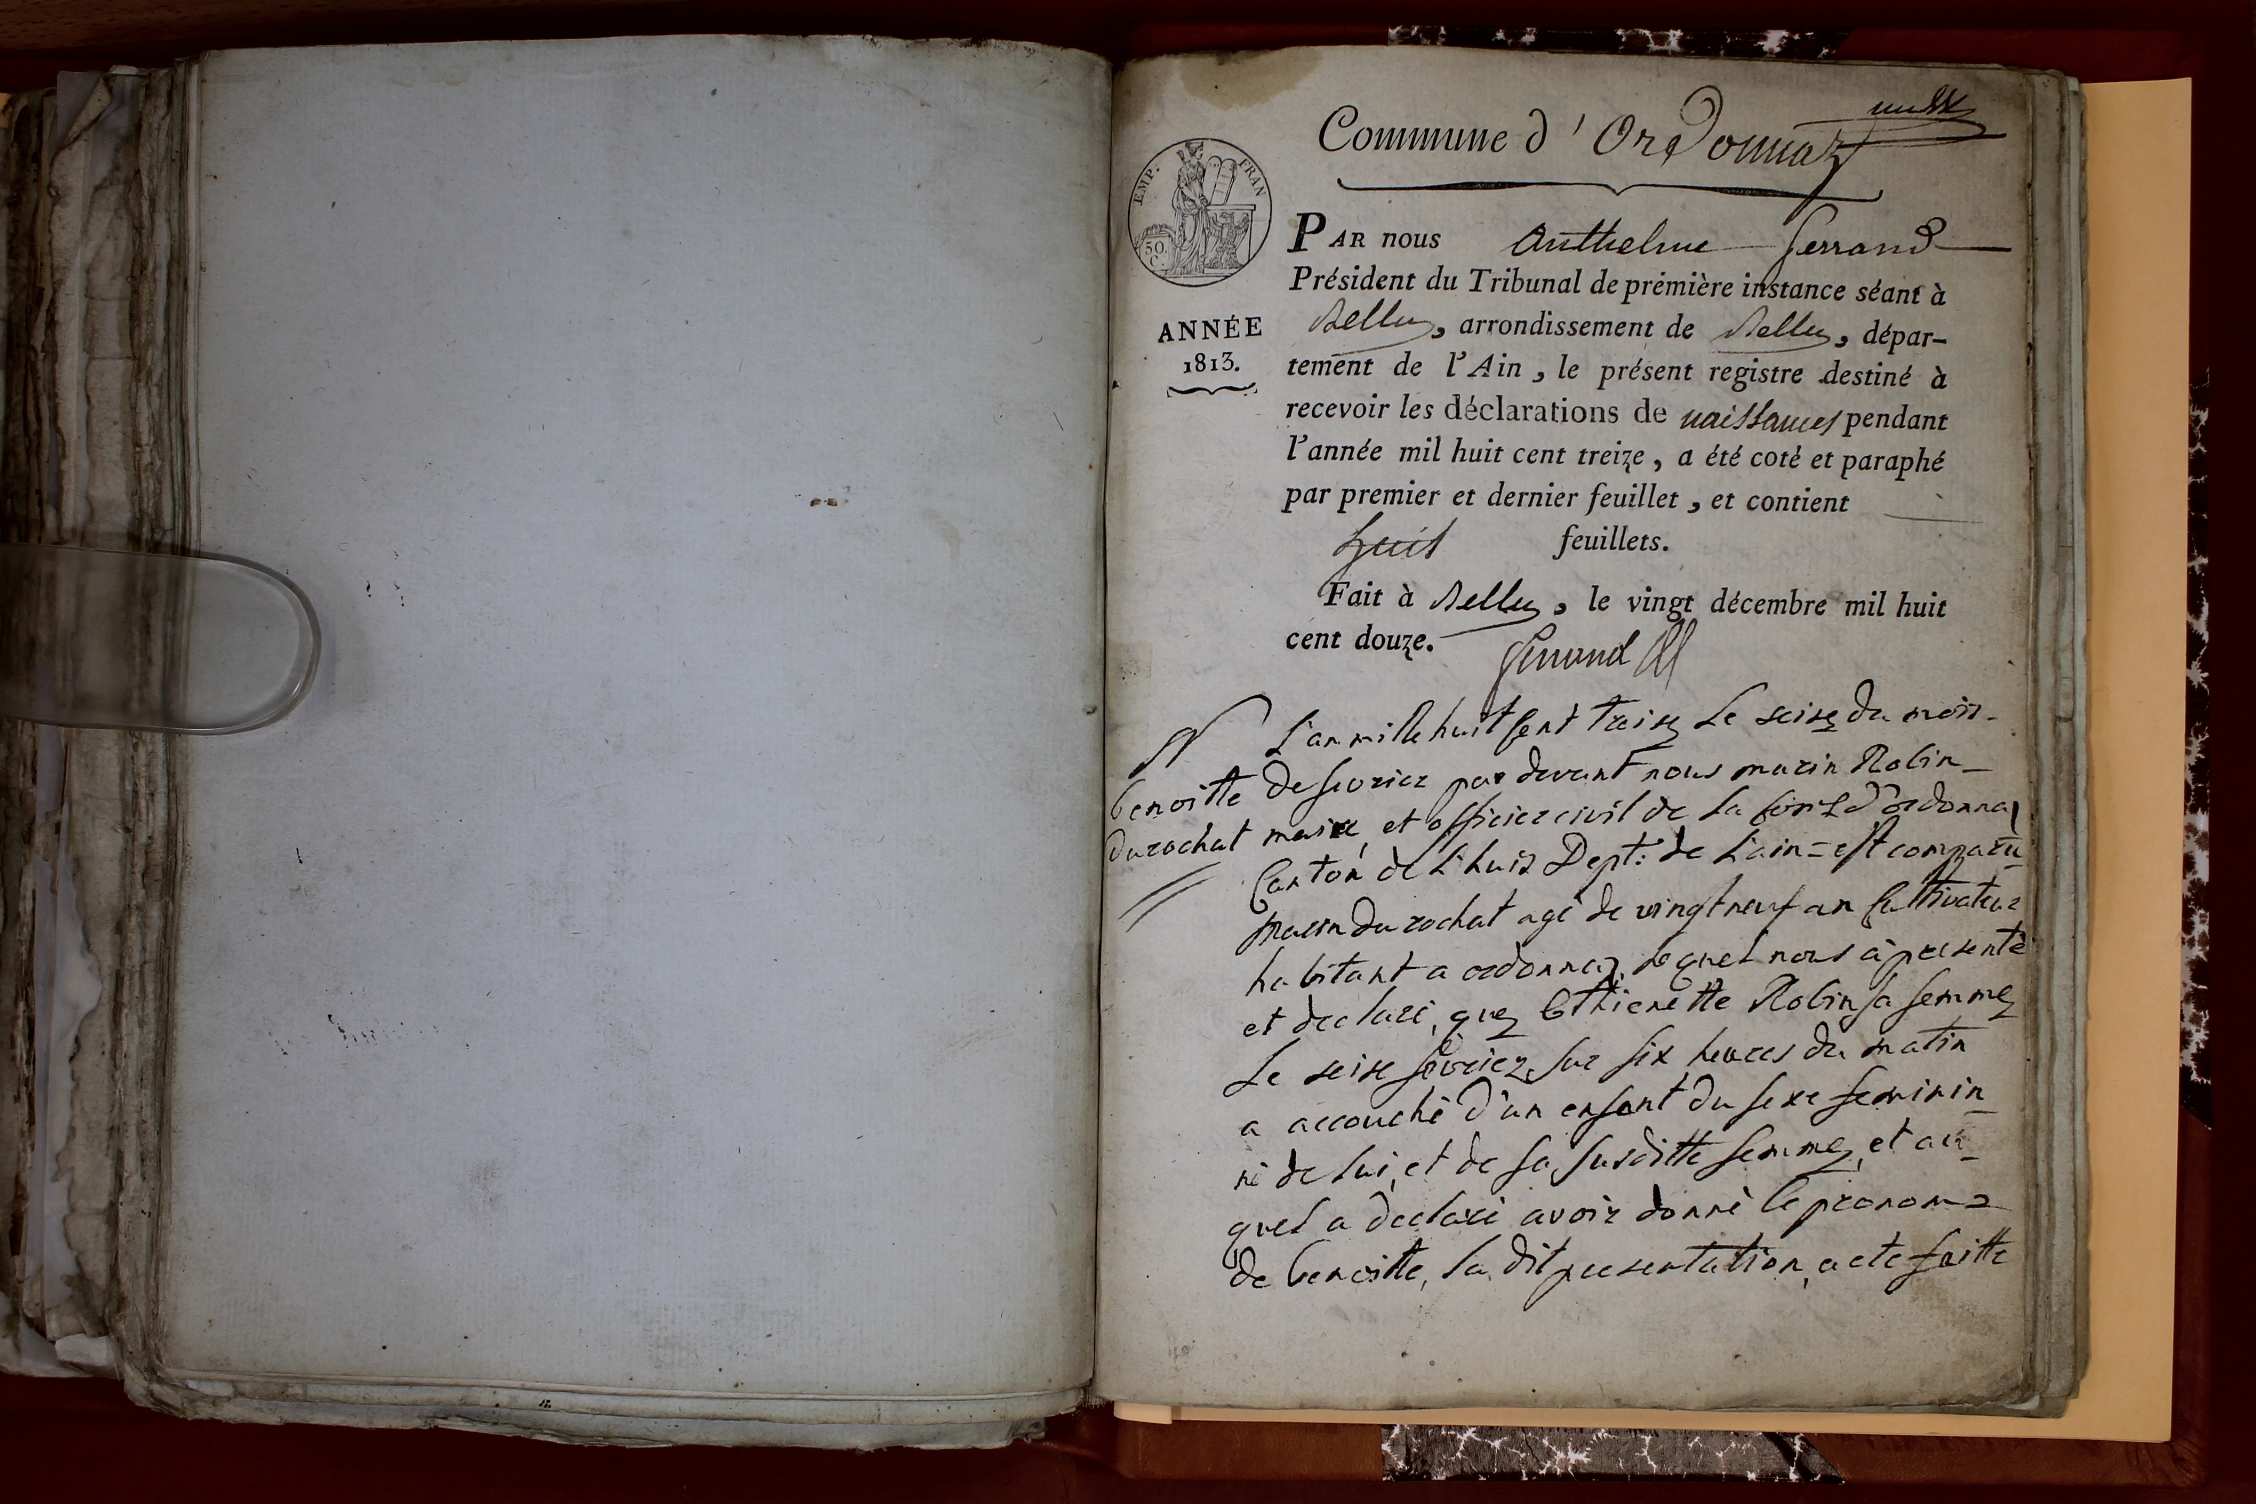 Commune d'Ordonnaz
EMP. FRAN
50.
C.
PAR nous Anthelme ferrand
Président du Tribunal de prémière instance séant à
Belley, arrondissement de Belley, dépar-
ANNÉE
1813.
tement de l'Ain, le présent registre destiné à
recevoir les déclarations de naissances pendant
l'année mil huit cent treize, a été coté et paraphé
par premier et dernier feuillet, et contient
huit feuillets.
Fait à Belley, le vingt décembre mil huit
cent douze.
ferrand
N
benoitte
durochat
L'an mille huit cent treize Le seize du mois
de fevrier par devant nous marin Robin
maire et officier civil de la d'ordonnaz
Canton de L'huis Dept: de L'ain = est comparu
marin durochat agé de vingt neuf an cultivateur
habitant a ordonnaz, lequel nous à presenté
et declaré, que Ethienette Robin sa femme
Le seise fevrier, sur six heures du matin
a accouché d'un enfant du sexe feminin
né de lui, et de sa susditte femme, et au
quel a declaré avoir donné le pronom
de benoitte, la dit presentation, a ete faitte